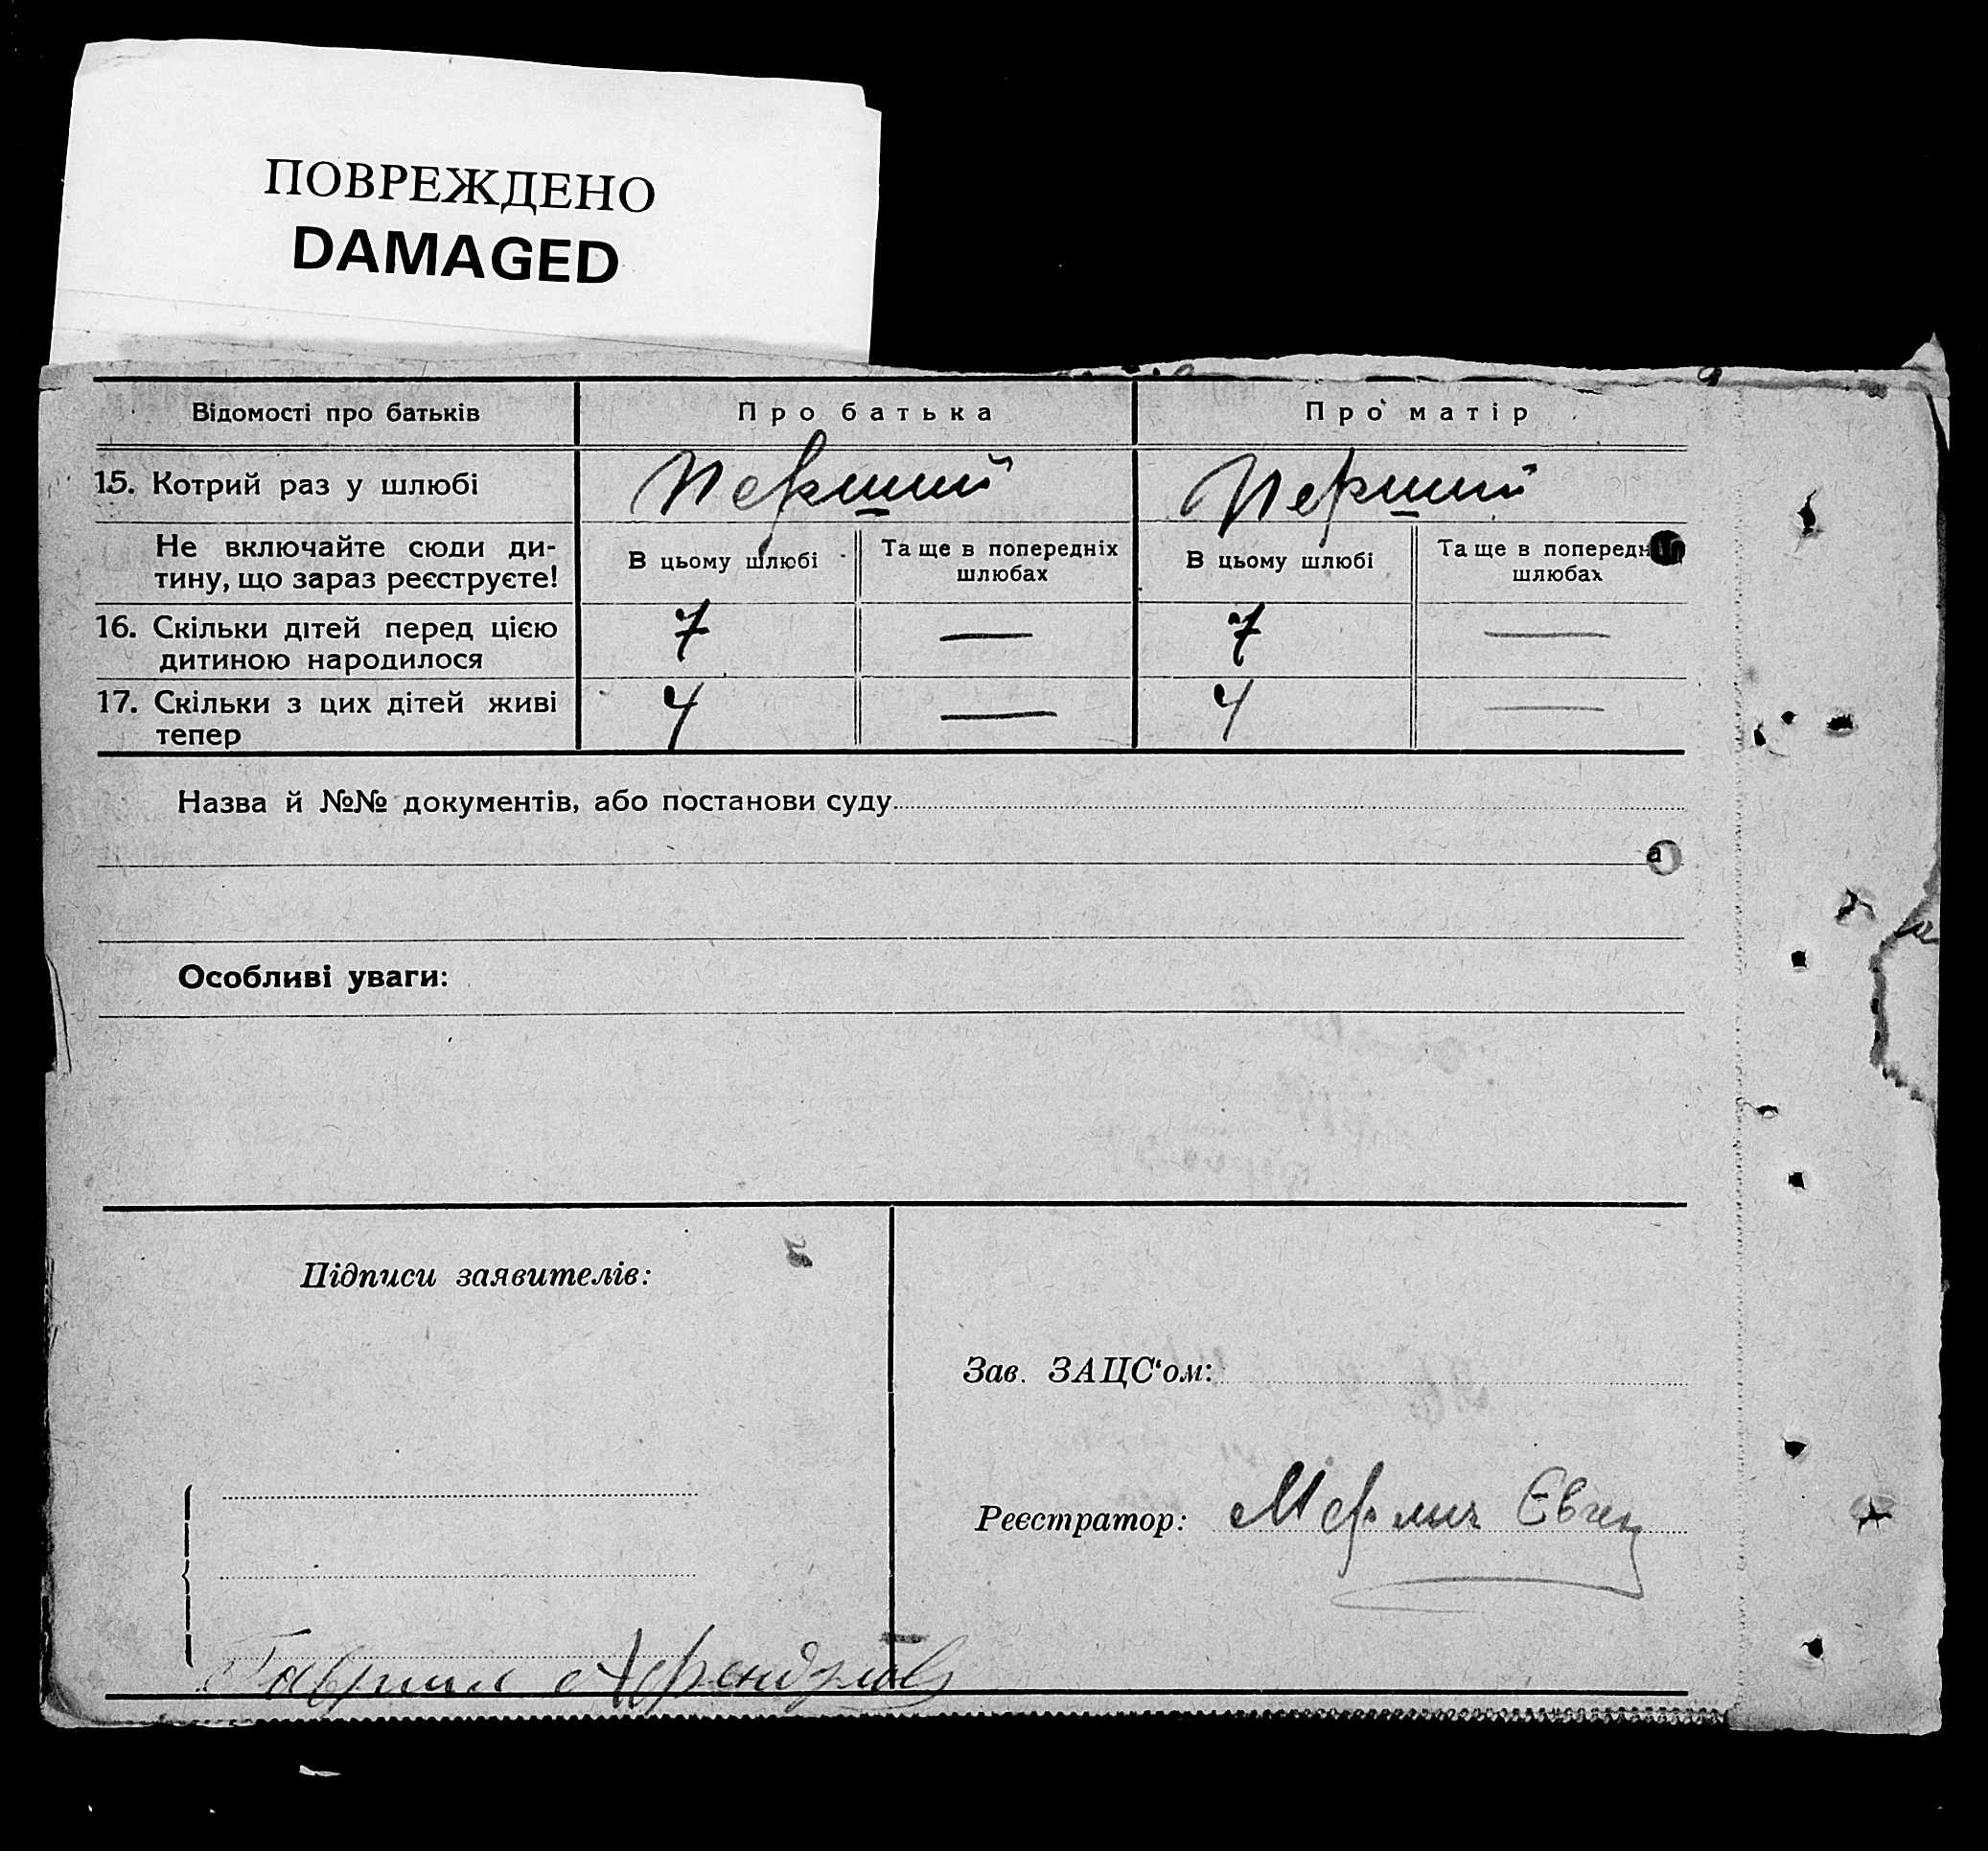 ПОВРЕЖДЕНО
DAMAGED
Відомості про батьків
Про батька
Про матір
15. Котрий раз у шлюбі
Перший
Перший
Не включайте сюди ди-
тину, що зараз реєструєте!
В цьому шлюбі
Та ще в попередніх
шлюбах
В цьому шлюбі
Та ще в попередн
шлюбах
16. Скільки дітей перед цією
дитиною народилося
7
—
7
—
17. Скільки з цих дітей живі
тепер
4
—
4
—
Назва й №№ документів, або постанови суду
Особливі уваги:
Підписи заявителів:
Зав. ЗАЦС‘ом:
Реєстратор:
Гавриил